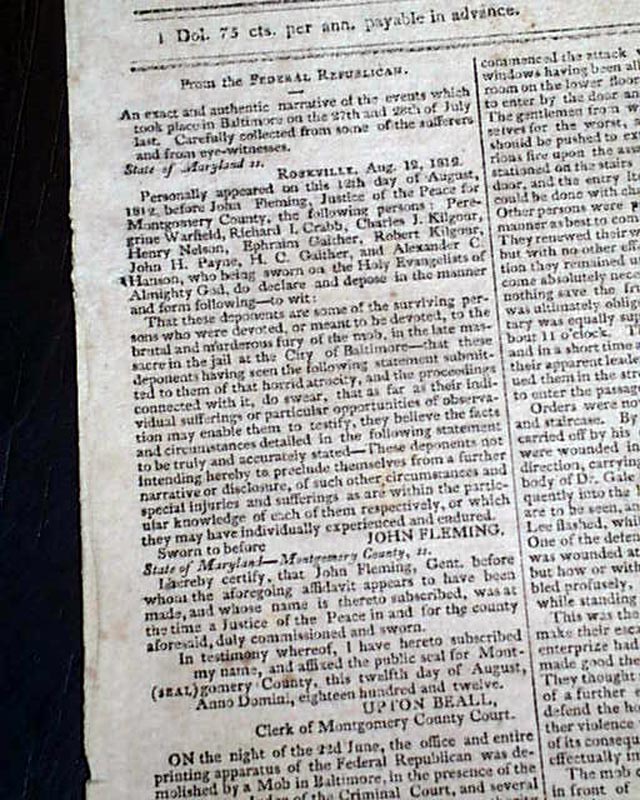 1 Dol. 75 cts. per ann. payable in advance.
From the FEDERAL REPUBLICAN.
An exact and authentic narrative of the events which
took place in Baltimore on the 27th and 28th of July
last. Carefully collected from some of the sufferers
and from eye-witnesses.
State of Maryland ss.
ROCKVILLE, Aug. 12, 1812.
Personally appeared on this 12th day of August,
1812, before John Fleming, Justice of the Peace for
Montgomery County, the following persons: Pere-
grine Warfield, Richard I. Crabb, Charles J. Kilgour,
Henry Nelson, Ephraim Gaither, Robert Kilgour,
John H. Payne, H. C. Gaither, and Alexander C.
Hanson, who being sworn on the Holy Evangelists of
Almighty God, do declare and depose in the manner
and form following—to wit:
That these deponents are some of the surviving per-
sons who were devoted, or meant to be devoted, to the
brutal and murderous fury of the mob, in the late mas-
sacre in the jail at the City of Baltimore—that these
deponents having seen the following statement submit-
ted to them of that horrid atrocity, and the proceedings
connected with it, do swear, that as far as their indi-
vidual sufferings or particular opportunities of observa-
tion may enable them to testify, they believe the facts
and circumstances detailed in the following statement
to be truly and accurately stated—These deponents not
intending hereby to preclude themselves from a further
narrative or disclosure, of such other circumstances and
special injuries and sufferings as are within the partic-
ular knowledge of each of them respectively, or which
they may have individually experienced and endured.
Sworn to before JOHN FLEMING.
State of Maryland—Montgomery County, ss.
I hereby certify, that John Fleming, Gent. before
whom the aforegoing affidavit appears to have been
made, and whose name is thereto subscribed, was at
the time a Justice of the Peace in and for the county
aforesaid, duly commissioned and sworn.
In testimony whereof, I have hereto subscribed
my name, and affixed the public seal for Mont-
(SEAL) gomery County, this twelfth day of August,
Anno Domini, eighteen hundred and twelve.
UPTON BEALL,
Clerk of Montgomery County Court.
ON the night of the 22d June, the office and entire
printing apparatus of the Federal Republican was de-
molished by a Mob in Baltimore, in the presence of the
of the Criminal Court, and several
commenced the attack
windows having been all
room on the lower floor
to enter by the door an
The gentlemen from w
selves for the worst,
should be pushed to ex
rious fire upon the ass
stationed on the stairs
door, and the entry
could be done with
Other persons were
manner as best to com
They renewed their w
but with no other eff
tion they remained u
come absolutely nece
nothing save the
was ultimately oblig
tary was equally sup
bout 11 o'clock.
and in a short time a
their apparent leade
ued them in the stre
to enter the passag
Orders were no
and staircase. By
carried off by his
were wounded in
direction, carrying
body of Dr. Gale
quently into the
are to be seen, an
Lee flashed, whi
One of the defen
was wounded at
but how or with
bled profusely,
while standing
This was the
make their esca
enterprise had
made good the
They thought
of a further
defend the ho
ther violence
of its consequ
effectually in
The mob
in front of